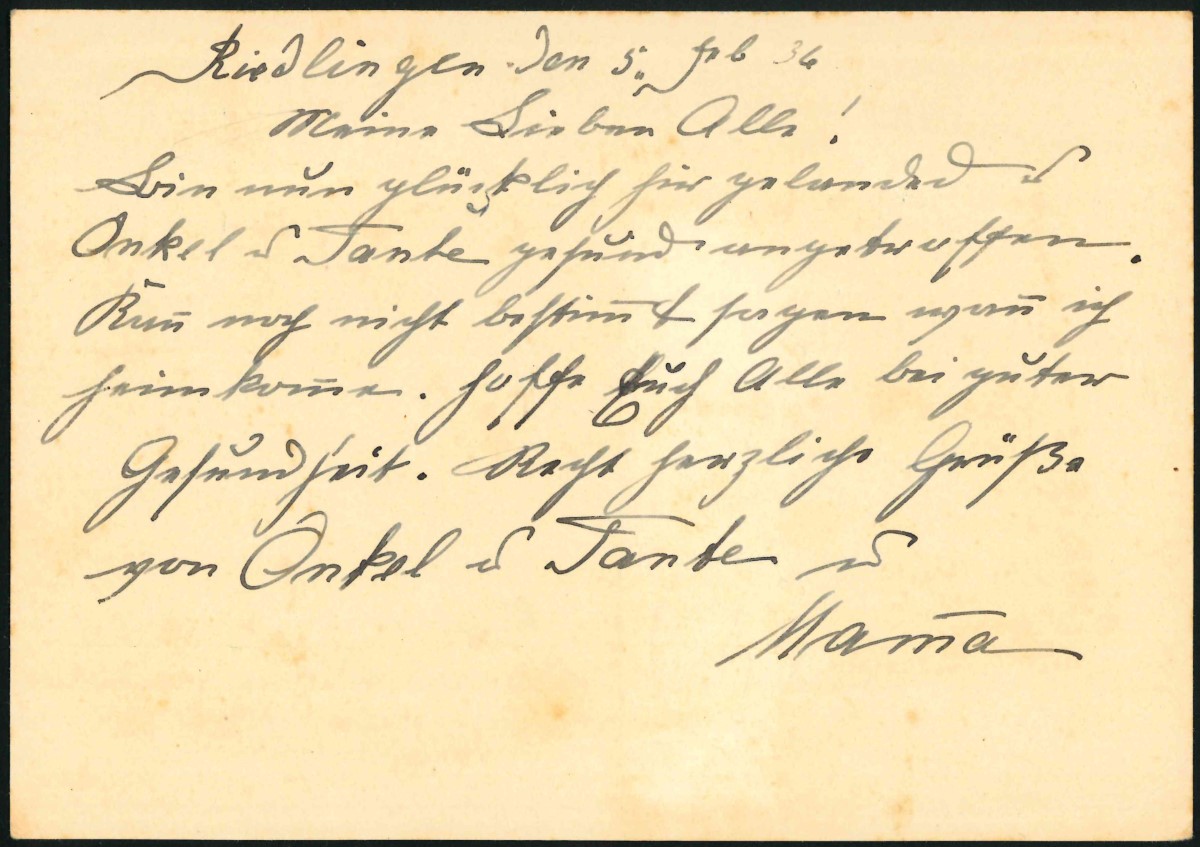 Riedlingen den 5. Feb 36
Meine Lieben Alle!
Bin nun glücklich hir gelanded u
Onkel u Tante gesund angetroffen.
Kan̄ noch nicht bestim̄t sagen wan̄ ich
heimkom̄e. hoffe Euch Alle bei guter
Gesundheit. Recht herzliche Grüße
von Onkel u Tante u
Mam̄a